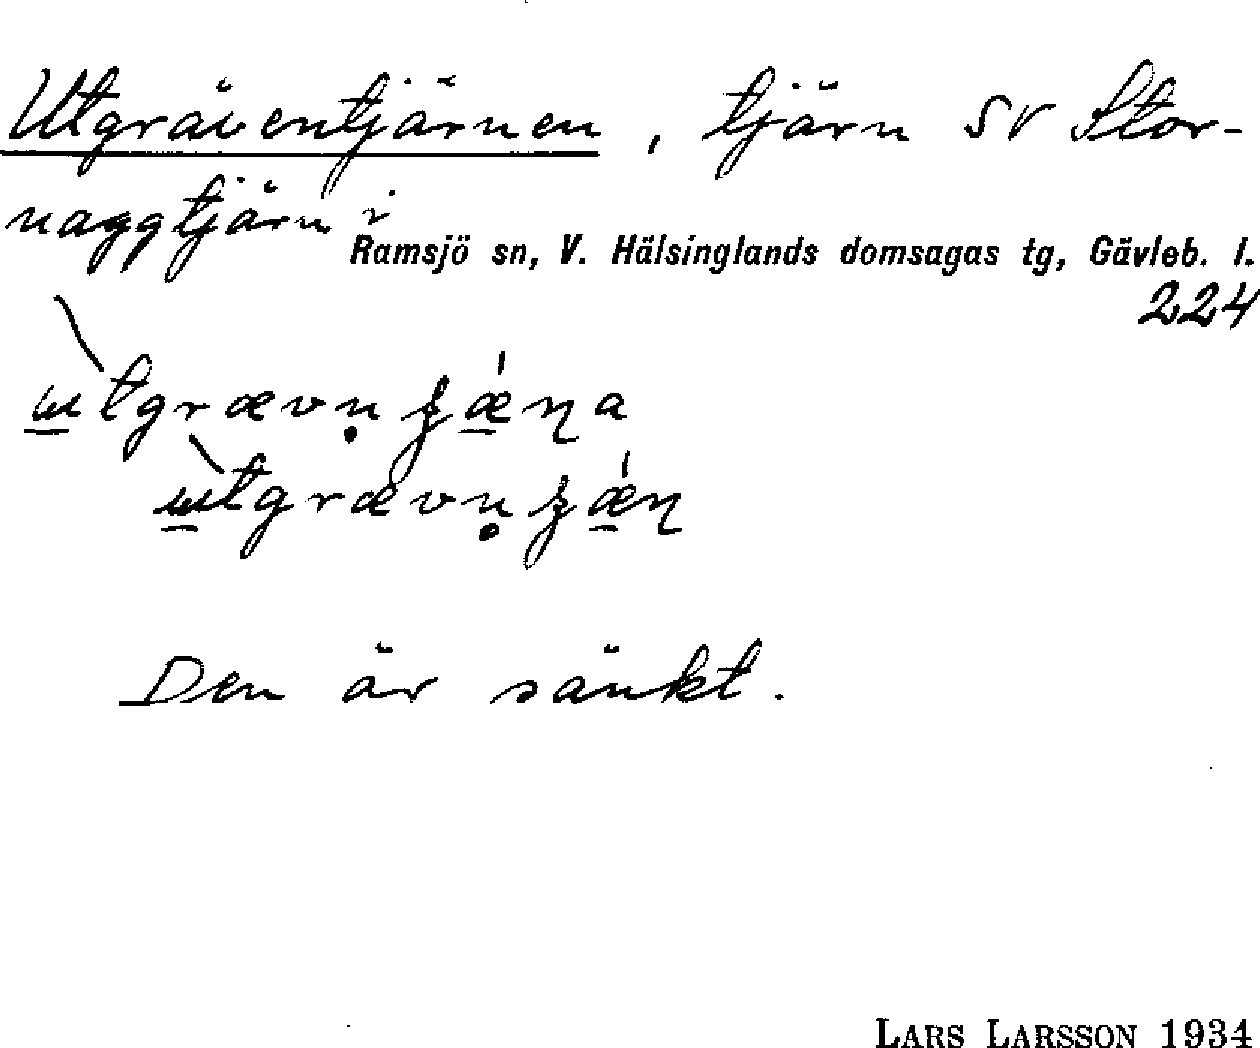 Utgräventjärnen, tjärn SV Stor-
naggtjärn i
Ramsjö sn, V. Hälsinglands domsagas tg, Gävleb. l.
224
Den är sänkt.
LARS LARSSON 1934